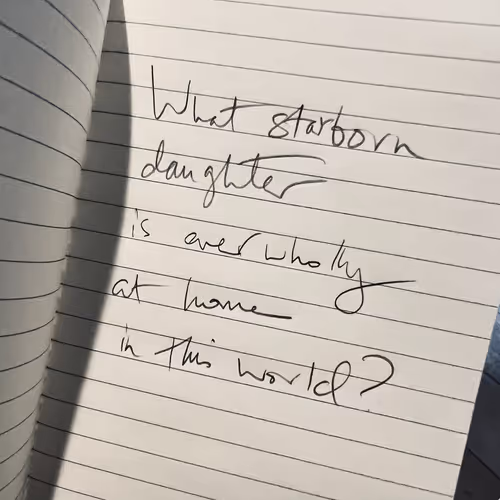 What starborn
daughter
is ever wholly
at home
in this world?